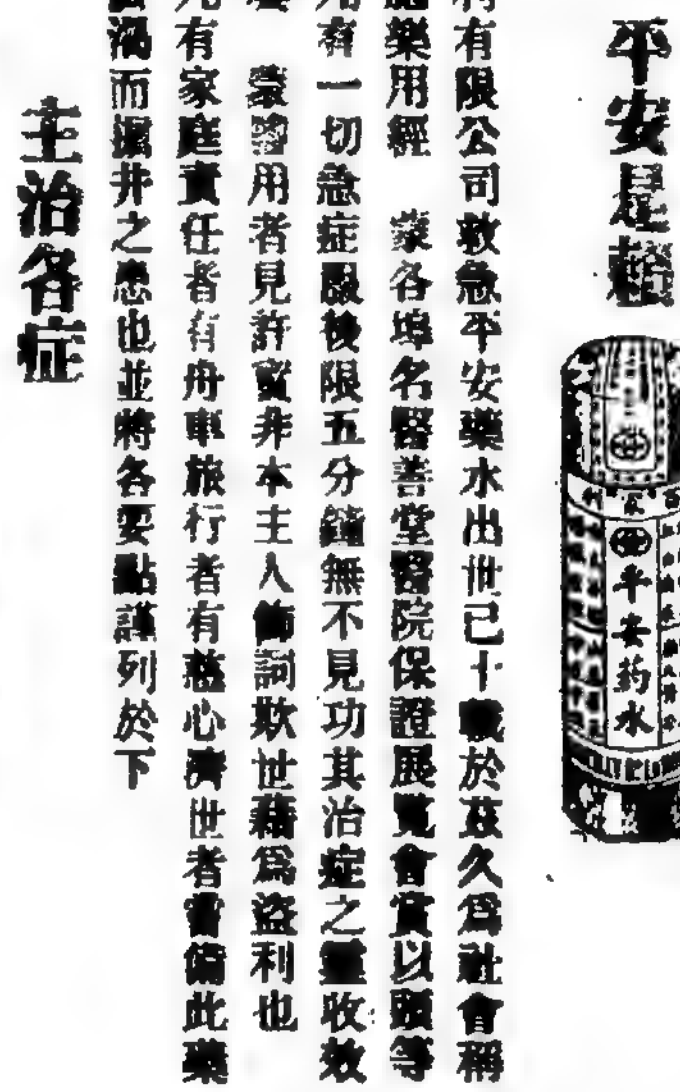 平安是賴
平安药水
利有限公司救急平安藥水出世已十載於茲久爲社會稱
藥用經 蒙各埠名醫善堂醫院保證展覽會賞以頭等
有一切急症服後限五分鐘無不見功其治症之靈收效
蒙嘗用者見許實非本主人飾詞欺世藉爲盜利也
凡有家庭責任者有舟車旅行者有慈心濟世者當備此藥
渴而掘井之患也並將各要點謹列於下
主治各症